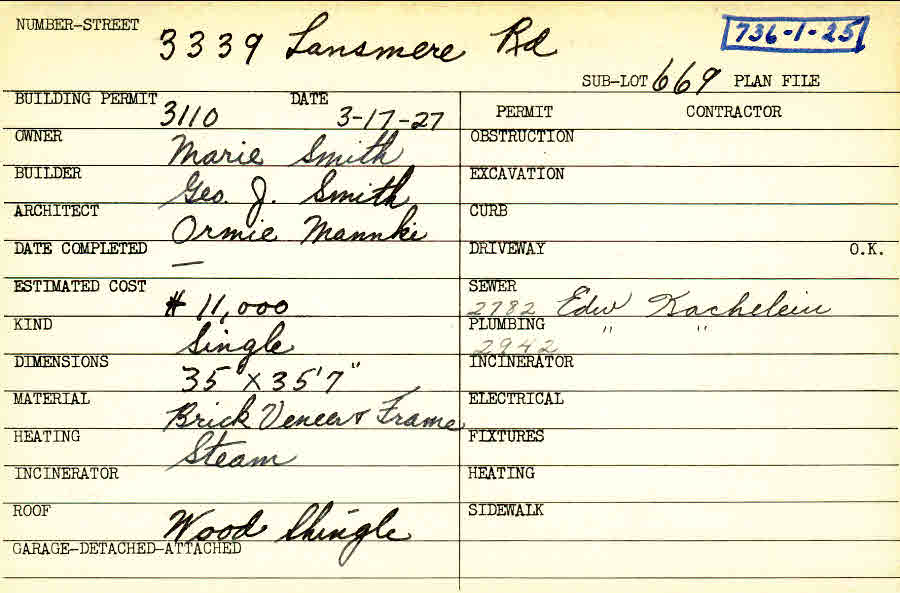 NUMBER-STREET 3339 Lansmere Rd 736-1-25
SUB-LOT 669 PLAN FILE
BUILDING PERMIT 3110 DATE 3-17-27
PERMIT CONTRACTOR
OWNER Marie Smith
OBSTRUCTION
BUILDER Geo. J. Smith
EXCAVATION
ARCHITECT Ormie Mannke
CURB
DATE COMPLETED —
DRIVEWAY O.K.
ESTIMATED COST $ 11,000
SEWER 2782 Edw Kachelein
KIND Single
PLUMBING 2942 " "
DIMENSIONS 35' X 35'7"
INCINERATOR
MATERIAL Brick Veneer & Frame
ELECTRICAL
HEATING Steam
FIXTURES
INCINERATOR
HEATING
ROOF Wood Shingle
SIDEWALK
GARAGE-DETACHED-ATTACHED